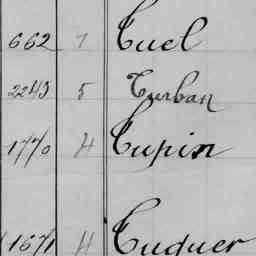 662 7 Cuel
2243 5 Curban
1770 4 Cupin
1671 4 Cuquer